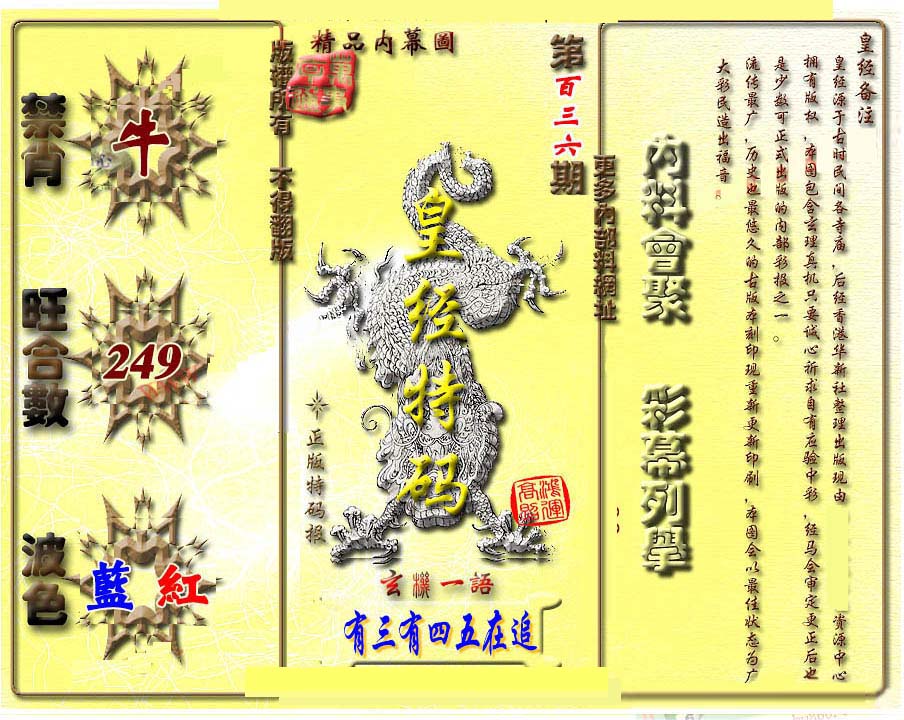 精品內幕圖
版權所有 不得翻版
禁肖
牛
旺合數
249
波色
藍 紅
第
百三六
期
皇经特码
正版特码报
鴻運高照
玄機一語
有三有四五在追
更多內部料網址
內料會聚 彩幕列舉
皇经备注
皇经源于古时民间各寺庙，后经香港华新社整理出版现由 资源中心
拥有版权，本图包含玄理真机只要诚心祈求自有应验中彩，经马会审定更正后也
是少数可正式出版的内部彩报之一。
流传最广，历史也最悠久的古版本刻印现重新更新印刷，本图会以最佳状态为广
大彩民造出福音